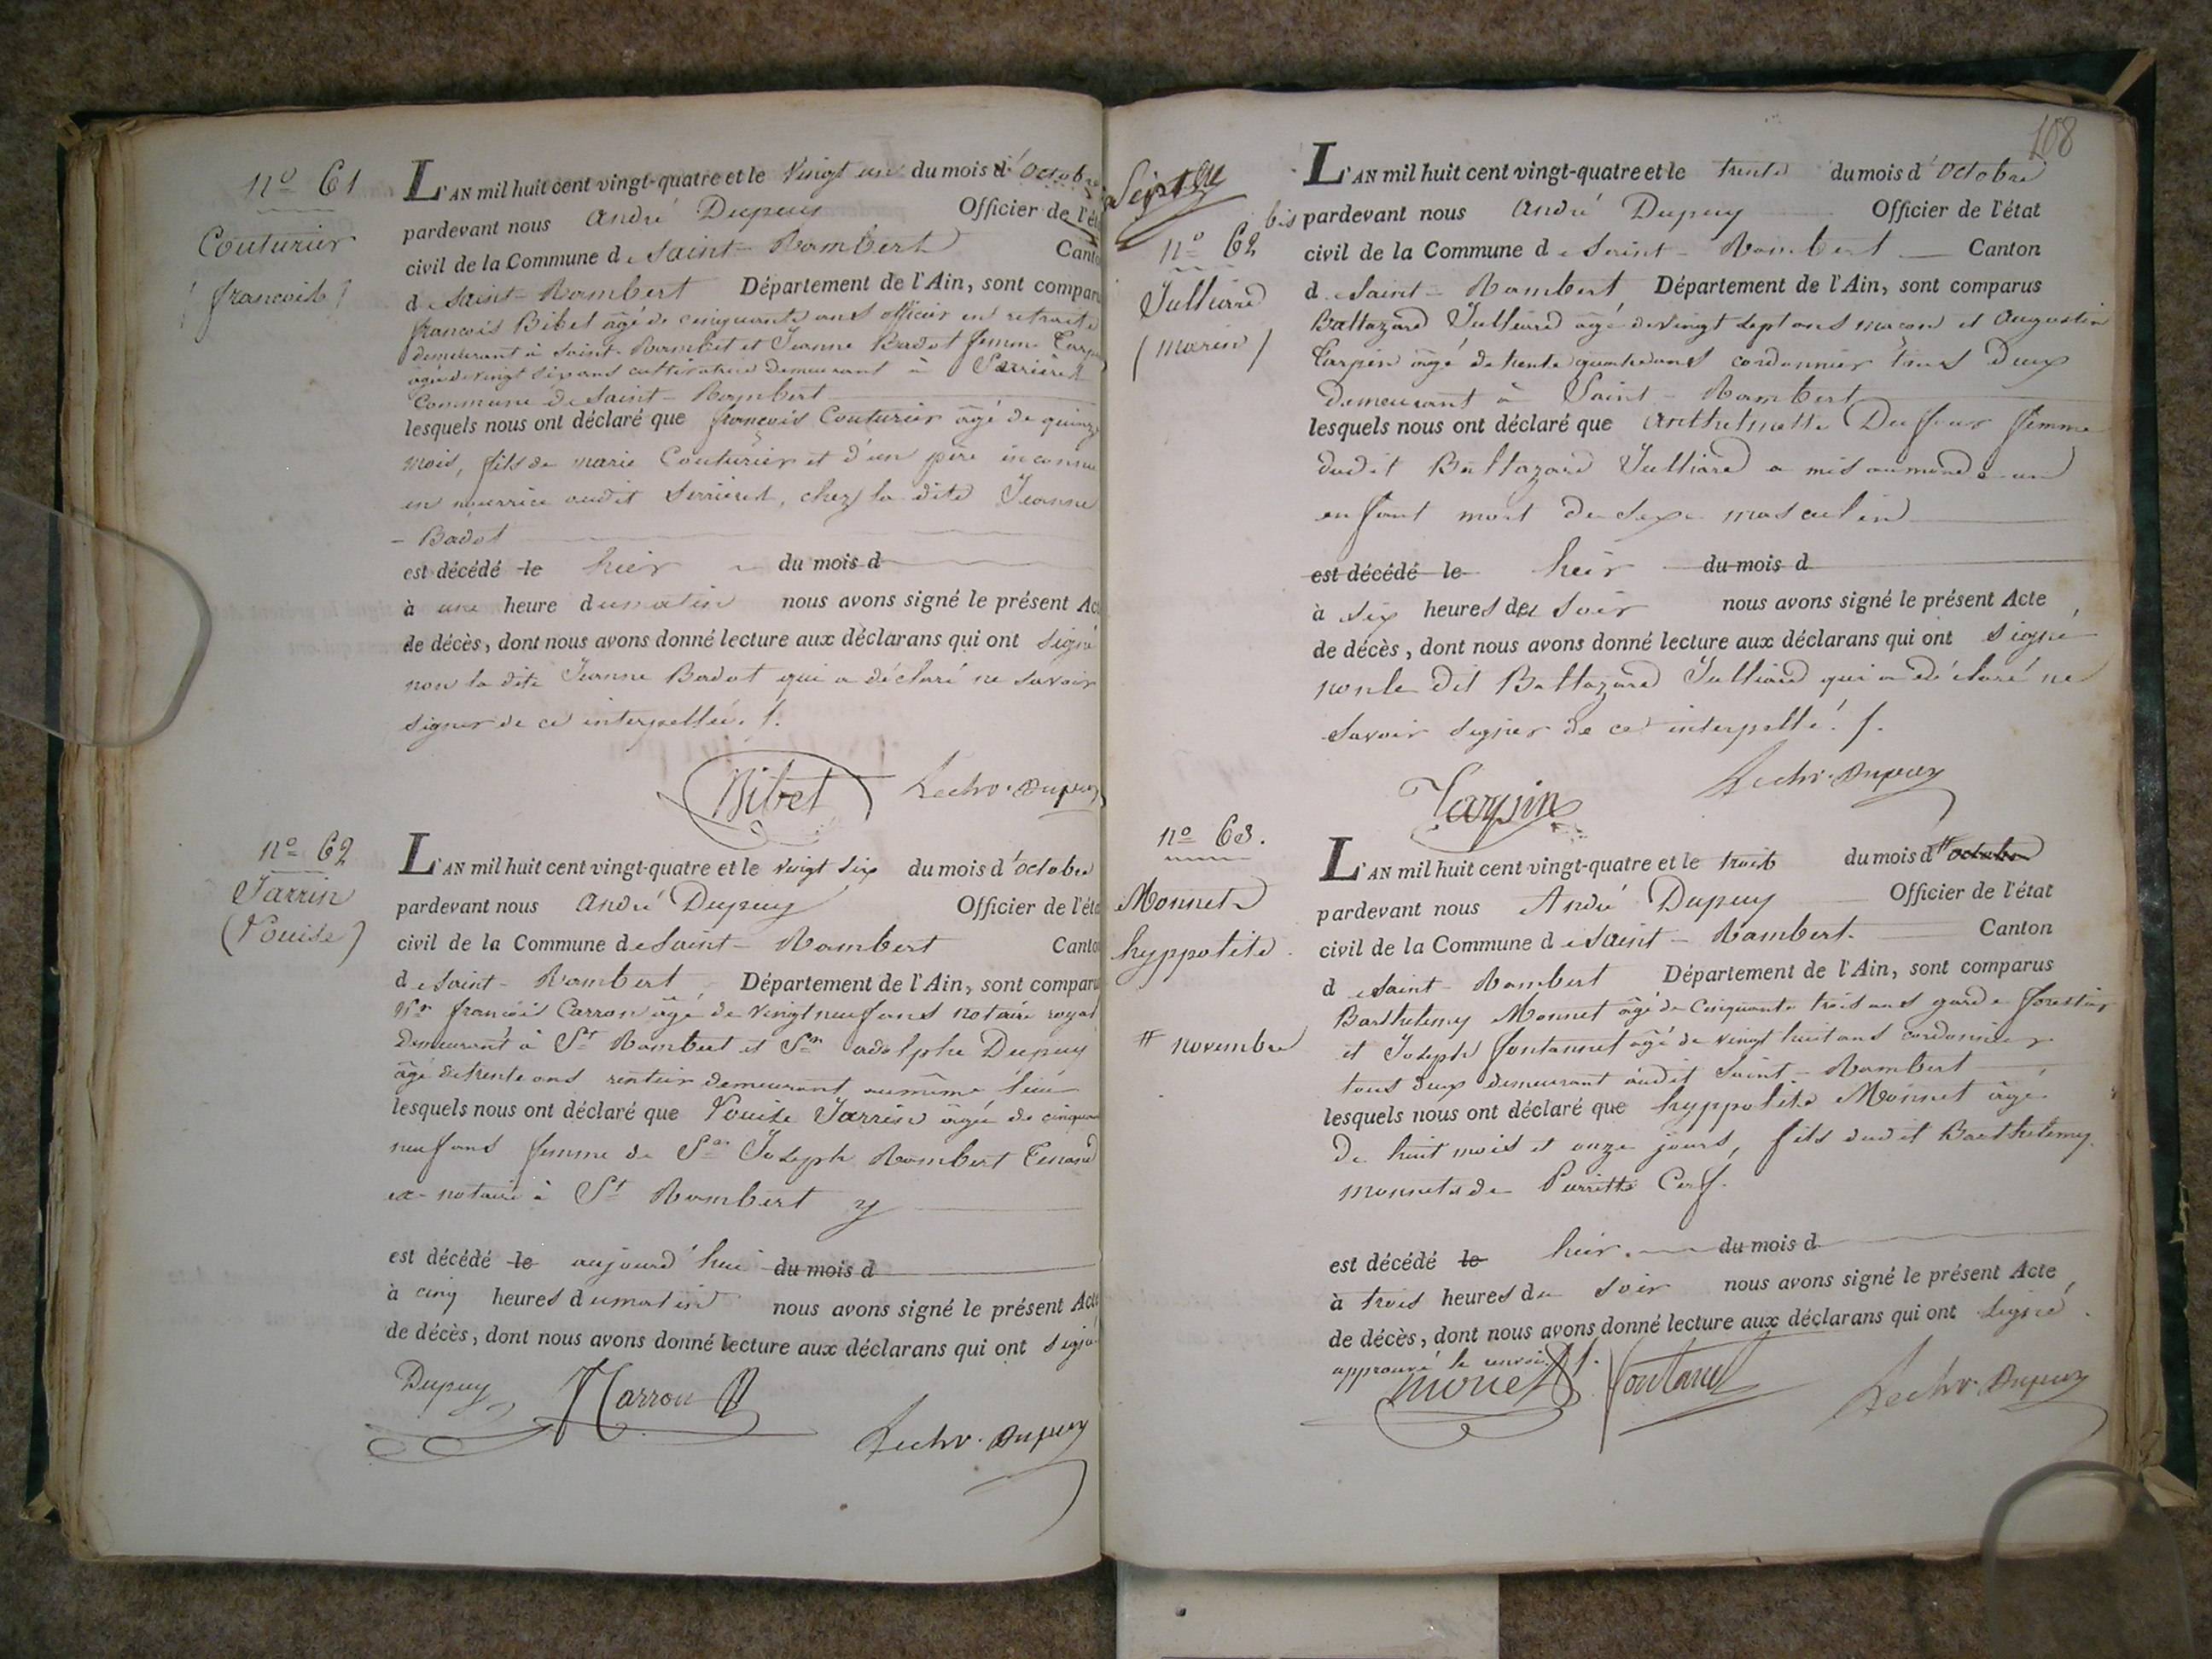 nº 61
Couturier
(françois)
L'AN mil huit cent vingt-quatre et le vingt un du mois d'octobre
pardevant nous andré Dupuy Officier de l'éta
civil de la Commune de Saint-Rambert Canto
de Saint-Rambert Département de l'Ain, sont compar
françois Bibet âgé de cinquante ans officier en retraite
demeurant à Saint-Rambert et Jeanne Badot femme
âgée de vingt six ans cultivatrice demeurant à Serrières
Commune de Saint-Rambert
lesquels nous ont déclaré que françois Couturier âgé de quinze
mois, fils de marie Couturier et d'un père inconnu
en nourrice audit Serrieres, chez la dite Jeanne
- Badot
est décédé le hier du mois d
à une heure du matin nous avons signé le présent Ac
de décès, dont nous avons donné lecture aux déclarans qui ont signé
non la dite Jeanne Badot qui a déclaré ne savoir
signer de ce interpellée. /.
Bibet Dupuy
nº 62
Jarrin
(Louise)
L'AN mil huit cent vingt-quatre et le vingt six du mois d'octobre
pardevant nous andré Dupuy Officier de l'éta
civil de la Commune de Saint-Rambert Canto
de Saint-Rambert, Département de l'Ain, sont comparu
Sr françois Carron âgé de vingt neuf ans notaire royal
demeurant à St Rambert et Sr adolphe Dupuy
âgé de trente ans rentier demeurant au même lieu
lesquels nous ont déclaré que Louise Jarrin âgée de cinquan
neuf ans femme de Sr Joseph Rambert Tenand
ex-notaire à St Rambert y
est décédé le aujourd'hui du mois d
à cinq heures du matin nous avons signé le présent Acte
de décès, dont nous avons donné lecture aux déclarans qui ont signé
Dupuy Carron
Dupuy
108
bis
nº 62
Julliard
(marin)
L'AN mil huit cent vingt-quatre et le trente du mois d'octobre
pardevant nous andré Dupuy Officier de l'état
civil de la Commune de Saint-Rambert Canton
de Saint-Rambert, Département de l'Ain, sont comparus
Baltazard Julliard âgé de vingt sept ans maçon et augustin
Tarpin âgé de trente quatre ans cordonnier tous deux
demeurant à Saint-Rambert
lesquels nous ont déclaré que anthelmette Dufour femme
dudit Baltazard Julliard a mis au monde un
enfant mort du sexe masculin
est décédé le heir du mois d
à six heures du soir nous avons signé le présent Acte
de décès, dont nous avons donné lecture aux déclarans qui ont signé
non le dit Baltazard Julliard qui a déclaré ne
savoir signer de ce interpellé. /.
Tarpin Dupuy
nº 63.
Monnet
hyppolite
# novembre
L'AN mil huit cent vingt-quatre et le trois du mois d # octobre
pardevant nous André Dupuy Officier de l'état
civil de la Commune de Saint-Rambert. Canton
de Saint-Rambert Département de l'Ain, sont comparus
Barthelemy Monnet âgé de cinquante trois ans garde forestier
et Joseph fontannet âgé de vingt huit ans cordonnier
tous deux demeurant audit Saint-Rambert
lesquels nous ont déclaré que hyppolite Monnet âgé
de huit mois et onze jours, fils dudit Barthelemy
monnet et de Pierrette Cerf.
est décédé le heir. du mois d
à trois heures du soir nous avons signé le présent Acte
de décès, dont nous avons donné lecture aux déclarans qui ont signé.
approuvé le renvoi /.
monet fontanet Dupuy